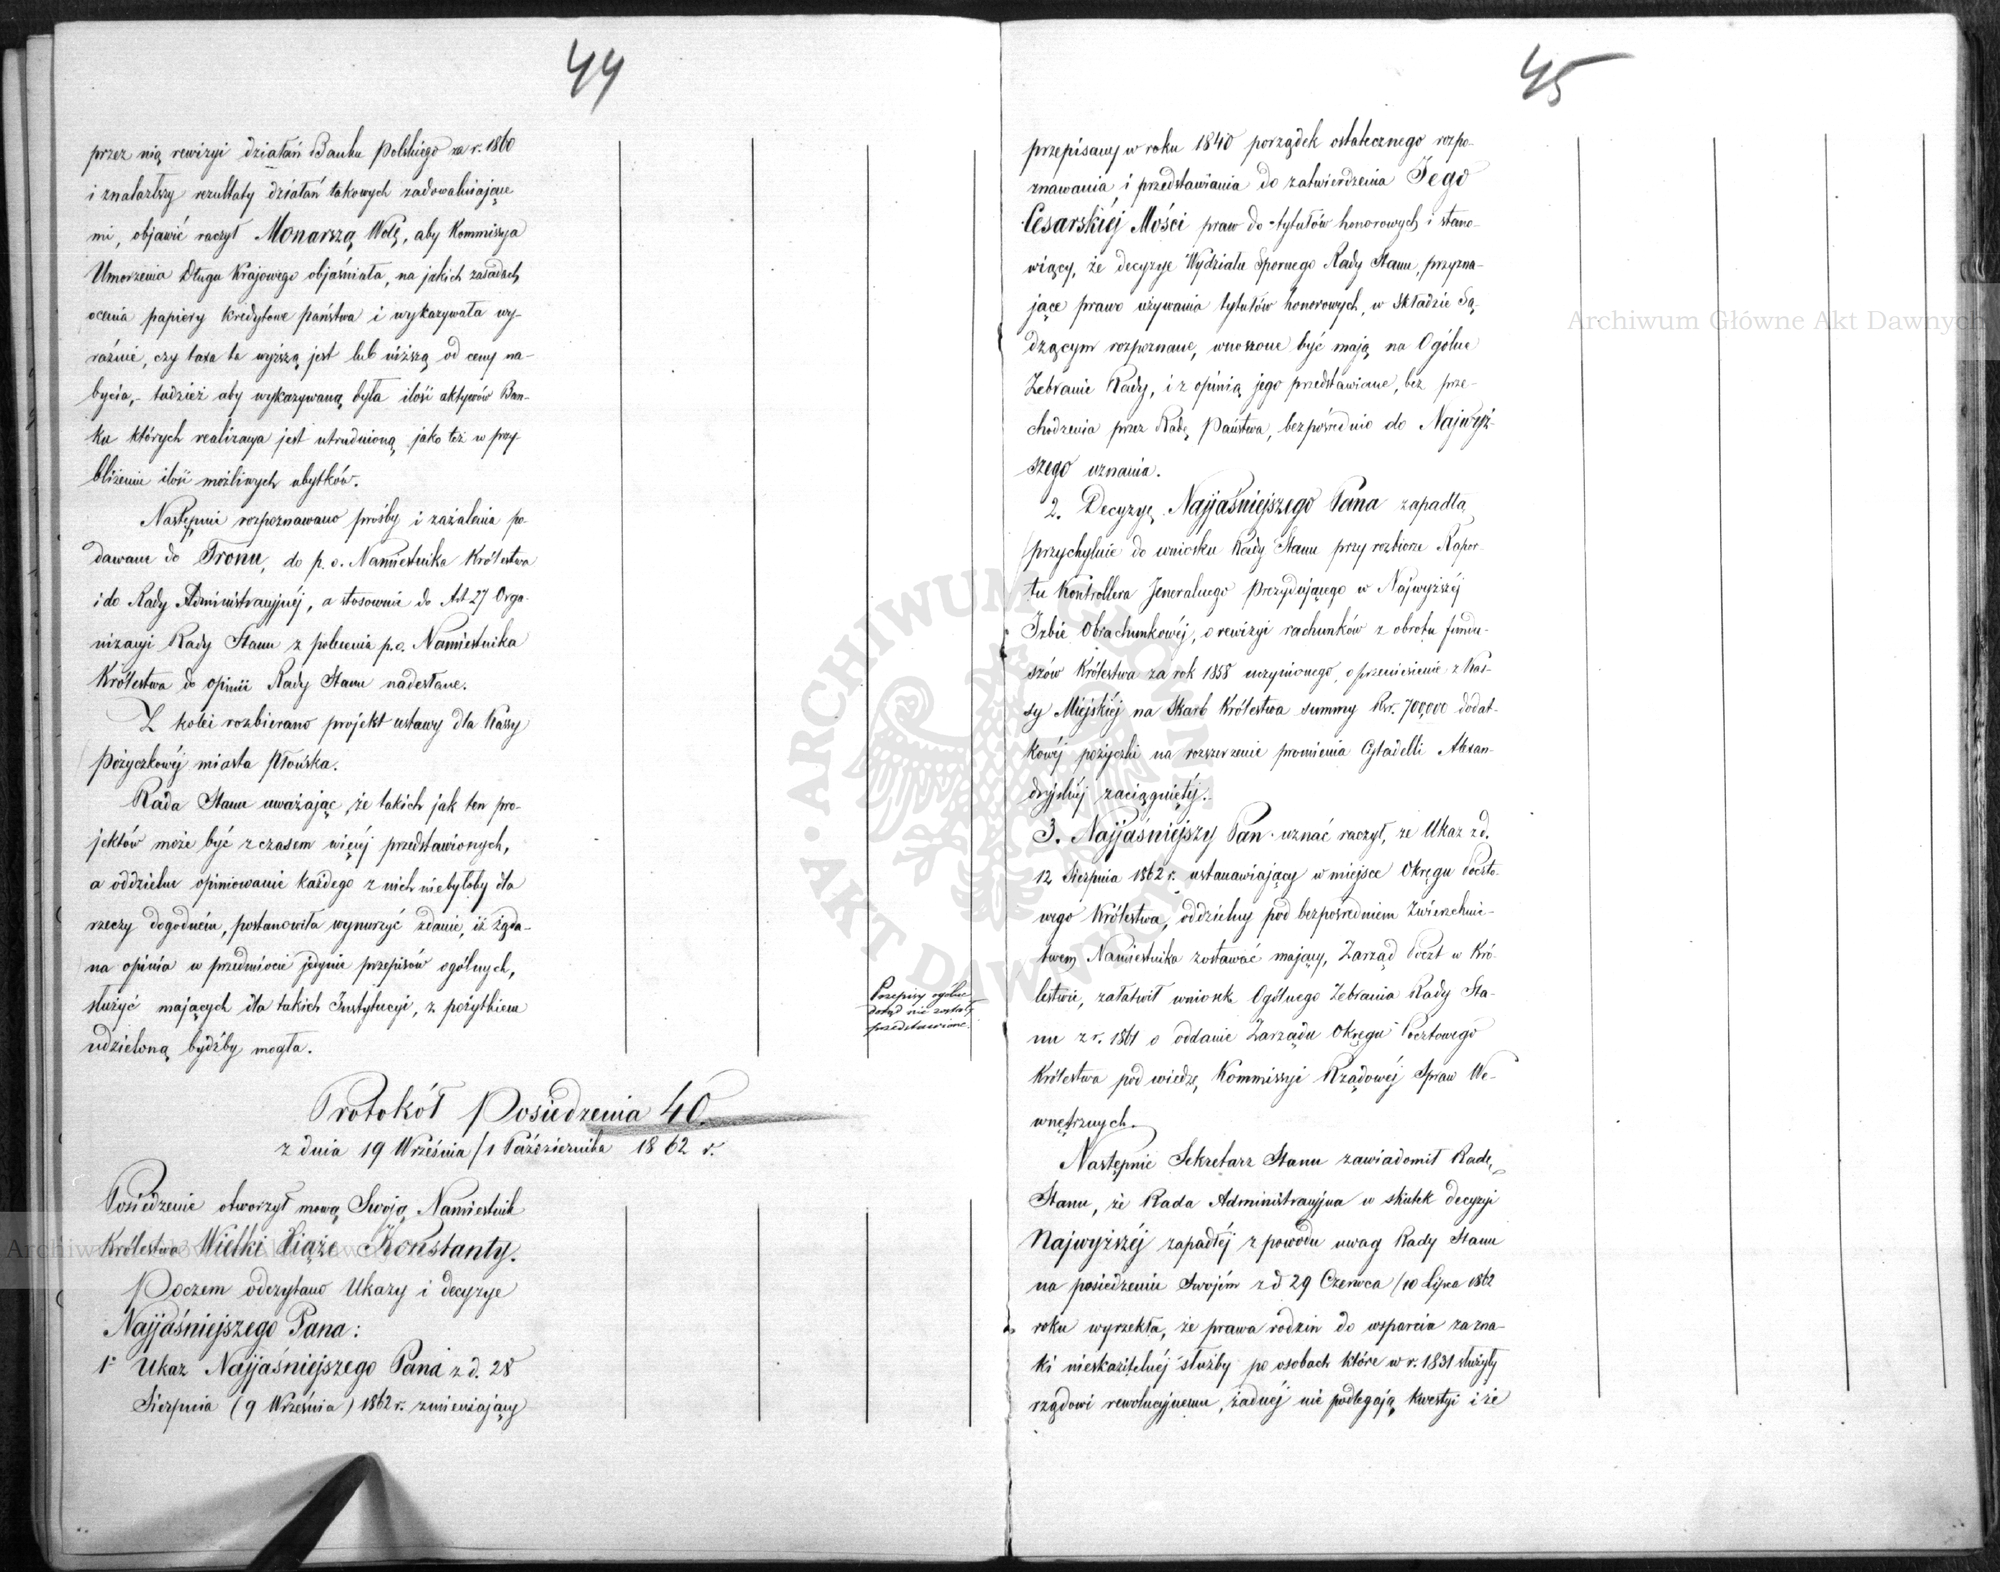 44
przez nią rewizyi działań Banku Polskiego za r. 1860
i znalazłszy rezultaty działań takowych zadowalniające
mi, objawić raczył Monarszą Wolę, aby Kommissya
Umorzenia Długu Krajowego objaśniała, na jakich zasadach
ocenia papiery kredytowe państwa i wykazywała wy-
raźnie, czy taxa ta wyższą jest lub niższą od ceny na-
bycia, - tudzież aby wykazywaną była ilość aktywów Ban-
ku których realizacya jest utrudnioną jako też w przy-
bliżeniu ilość możliwych ubytków.
Następnie rozpoznawano prośby i zażalenia po-
dawane do Tronu, do p. o. Namiestnika Królestwa
i do Rady Administracyjnéj, a stosownie do Art 27 Orga-
nizacyi Rady Stanu z polecenia p. o. Namiestnika
Królestwa do opinii Rady Stanu nadesłane.
Z kolei rozbierano projekt ustawy dla Kassy
Pożyczkowéj miasta Płońska.
Rada Stanu uważając, że takich jak ten pro-
jektów może być z czasem więcéj przedstawionych,
a oddzielne opiniowanie każdego z nich niebyłoby dla
rzeczy dogodném, postanowiła wynurzyć zdanie, iż żąda-
na opinia w przedmiocie jedynie przepisów ogólnych,
służyć mających dla takich Instytucyi, z pożytkiem
udzieloną bydźby mogła.
Przepisy ogólne
dotąd nie zostały
przedstawione.
Protokół Posiedzenia 40.
z dnia 19 Września/1 Października 1862 r.
Posiedzenie otworzył mową Swoją Namiestnik
Królestwa Wielki Xiąże Konstanty.
Poczem odczytano Ukazy i decyzye
Najjaśniejszego Pana:
1º Ukaz Najjaśniejszego Pana z d. 28
Sierpnia (9 Września) 1862 r. zmieniający
45
przepisany w roku 1840 porządek ostatecznego rozpo-
znawania i przedstawiania do zatwierdzenia Jego
Cesarskiéj Mości praw do tytułów honorowych i stano-
wiący, że decyzye Wydziału Spornego Rady Stanu, przyzna-
jące prawo używania tytułów honorowych, w składzie Są-
dzącym rozpoznane, wnoszone być mają na Ogólne
Zebranie Rady, i z opinią jego przedstawiane, bez prze-
chodzenia przez Radę Państwa, bezpośrednio do Najwyż-
szego uznania.
2. Decyzyę Najjaśniejszego Pana zapadłą
przychylnie do wniosku Rady Stanu przy rozbiorze Rapor-
tu Kontrollera Jeneralnego Prezydującego w Najwyższéj
Izbie Obrachunkowéj, o rewizyi rachunków z obrotu fundu-
szów Królestwa za rok 1858 uczynionego, o przeniesienie z Kas-
sy Miejskiéj na Skarb Królestwa summy Rsr. 700,000 dodat-
kowéj pożyczki na rozszerzenie promienia Cytadelli Alexan-
dryjskiéj zaciągniętéj.
3. Najjaśniejszy Pan uznać raczył, że Ukaz z d.
12 Sierpnia 1862 r. ustanawiający w miejsce Okręgu Poczto-
wego Królestwa, oddzielny pod bezpośredniem Zwierzchni-
twem Namiestnika zostawać mający, Zarząd Poczt w Kró-
lestwie, załatwił wniosek Ogólnego Zebrania Rady Sta-
nu z r. 1861 o oddanie Zarządu Okręgu Pocztowego
Królestwa pod wiedzę Kommissyi Rządowéj Spraw We-
wnętrznych.
Następnie Sekretarz Stanu zawiadomił Radę
Stanu, że Rada Administracyjna w skutek decyzyi
Najwyższéj zapadłéj z powodu uwag Rady Stanu
na posiedzeniu Swojém z d 29 Czerwca /10 Lipca 1862
roku wyrzekła, że prawa rodzin do wsparcia za zna-
ki nieskazitelnéj służby po osobach które w r. 1831 służyły
rządowi rewolucyjnemu, żadnéj nie podlegają kwestyi i że
Archiwum Główne Akt Dawnych
ARCHIWUM GŁÓWNE AKT DAWNYCH